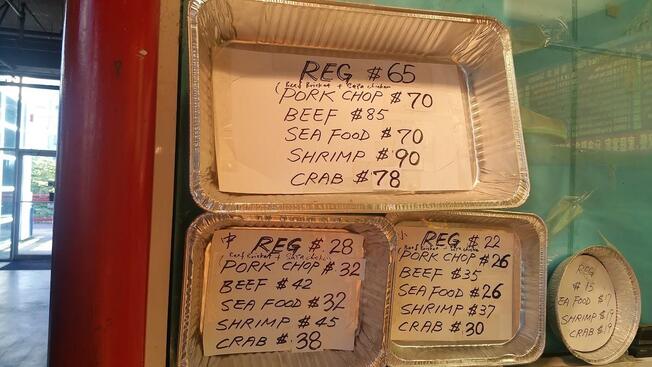 REG $65
(Beef Brisket + Sa Sa chicken
PORK CHOP $70
BEEF $85
SEA FOOD $70
SHRIMP $90
CRAB $78
中 REG $28
PORK CHOP $32
BEEF $42
SEA FOOD $32
SHRIMP $45
CRAB $38
小 REG $22
PORK CHOP $26
BEEF $35
SEA FOOD $26
SHRIMP $37
CRAB $30
REG
$15
EA FOOD $17
SHRIMP $19
CRAB $19